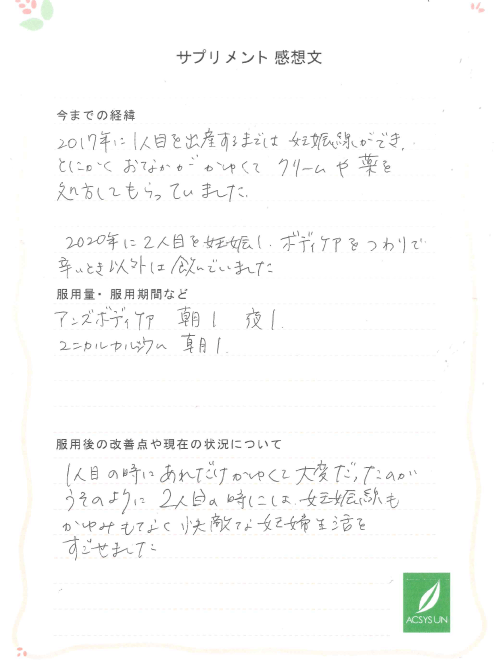 サプリメント 感想文
今までの経緯
2017年に1人目を出産するまでは 妊娠線ができ、
とにかく おなかが かゆくて クリームや 薬を
処方してもらっていました。
2020年に2人目を妊娠し、ボディケアを つわりで
辛いとき以外は飲んでいました
服用量・服用期間など
アンズボディケア 朝1 夜1.
ユニカルカルシウム 朝1.
服用後の改善点や現在の状況について
1人目の時に あれだけかゆくて大変だったのが
うそのように 2人目の時には、妊娠線も
かゆみもなく 快適な妊婦生活を
すごせました
ACSYSUN